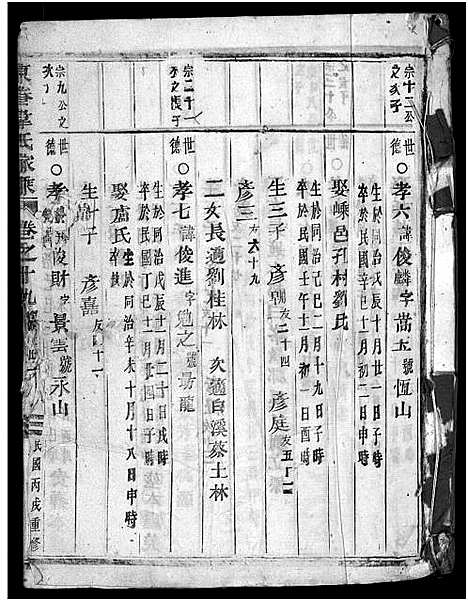 宗十二公之次子
世德
○孝六諱俊麟字蒿玉號恆山
生於同治戊辰十月廿一日子時
卒於民國辛巳十月初二日申時
娶嵊邑孔村劉氏
生於同治己巳二月十九日子時
卒於民國壬午十二月初一日酉時
生三子 彥朝友二十四 彥庭友五十二
彥三友六十九
二女長適劉桂林 次適白溪蔡土林
宗二十一公之長子
世德
○孝七諱俊進字勉之號昜龍
生於同治戊辰十一月二十日戌時
卒於民國丁巳十一月廿日子時
娶盧氏生於同治辛未十月十八日申時
生一子 彥嘉友四十一
宗九公之次子
世德
○孝 俊財字景雲號永山
氏家乘 卷之十九
民國丙戌重修